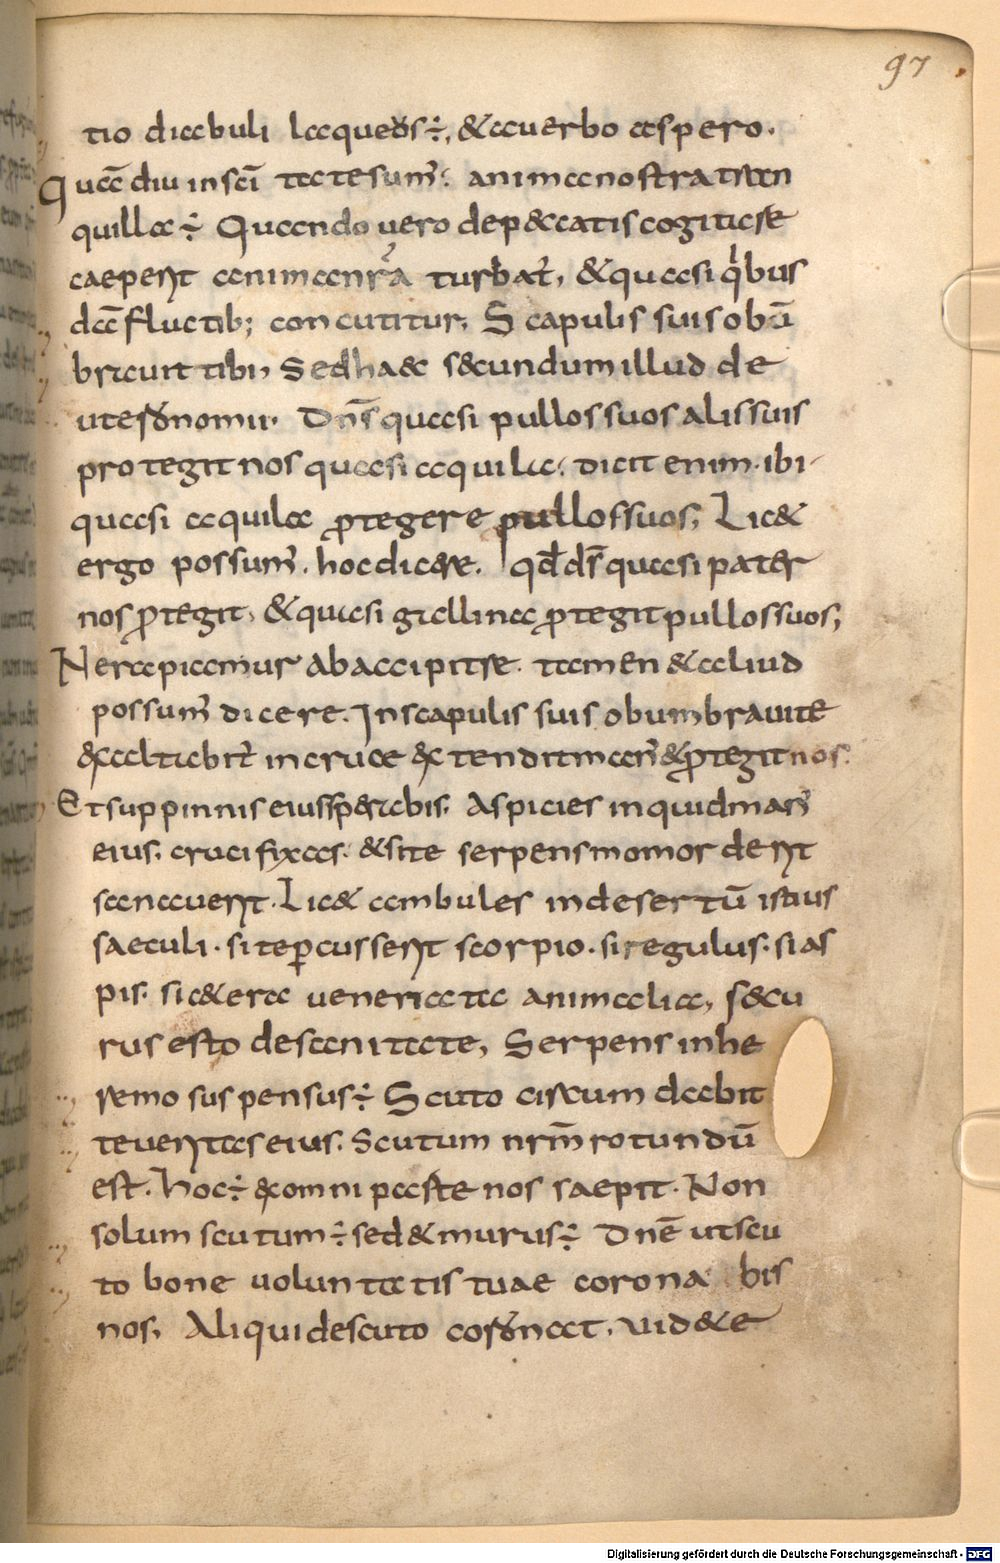 97
tio diabuli laqueus ÷, & auerbo aspero.
Quādiu in scī tatesum̄. anima nostra tran
quilla ÷ Quando uero dep&catis cogitare
caeper̄t animanr̄a turbat̄, & quasi q̇bus
dā fluctib; concutitur. Scapulis suis obū
brauit tibi, Sed ha& s&cundum illud de
uteronomii. Dn̄s quasi pullos suos alis suis
protegit nos quasi aquila. dicit enim. ibi.
quasi aquila ꝓtegere pullos suos, Lic&
ergo possum̄. hoc dicere. qđ dn̄s quasi pater
nos ꝓtegit, & quasi gallina ꝓtegit pullos suos,
Ne rapiamur ab accipitre. tamen & aliud
possum̄ dicere. In scapulis suis obumbrauit te
& exaltabit̄ in cruce & extendit man̄ & ꝓtegit nos.
Et sup pinnis eius sperabis. Aspicies inquid man̄
eius. crucifixas. & si te serpens momorder̄t
sanauer̄t. Lic& ambules in desertū istius
saeculi. si te ꝑcusser̄t scorpio. si regulus. si as
pis. sic & era uenerata animalia, s&cu
rus esto de sanitate, Serpens in he
remo suspensus ÷ Scuto circum dabit
te ueritas eius. Scutum nr̄m rotundū
est. hoc ÷ ex omni parte nos saepit. Non
solum scutum ÷ sed & murus ÷ Dnē ut scu
to bone uoluntatis tuae corona bis
nos. Aliqui de scuto cogitant. uid&e
Digitalisierung gefördert durch die Deutsche Forschungsgemeinschaft - DFG